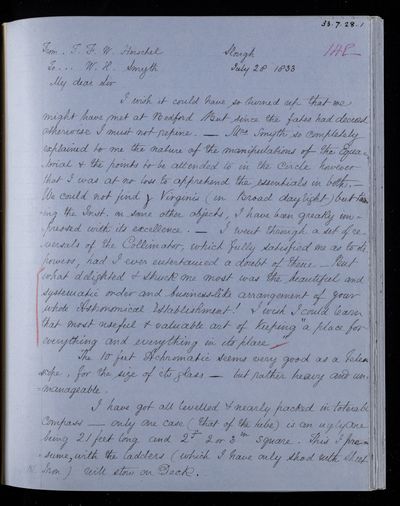 33.7.28.1
From. J. F. W. Herschel Slough 148
To... W. H. Smyth July 28 1833
My dear Sir
I wish it could have so turned up that we
might have met at Bedford But since the fates had decreed
otherwise I must not repine. — Mrs Smyth so completely
explained to me the nature of the manipulations of the Equa-
torial & the points to be attended to in the Circle however
that I was at no loss to apprehend the essentials in both, —
We could not find γ Virginis (in broad daylight) but try
-ing the Inst. on some other objects, I have been greatly im-
-pressed with its excellence. — I went through a set of re-
versals of the Collimator, which fully satisfied me as to its
powers, had I ever entertained a doubt of them — But
what delighted & struck me most was the beautiful and
systematic order and business-like arrangement of your
whole Astronomical Establishment! I wish I could learn
that most useful & valuable art of keeping "a place for
everything and everything in its place —"
The 10 feet Achromatic seems very good as a teles-
-cope, for the size of its glass — but rather heavy and un-
-manageable.
I have got all levelled & nearly packed in tolerable
compass — only one case (that of the tube) is an ugly one
being 21 feet long and 2 ft 2 or 3 in square. This I pre-
-sume, with the ladders (which I have only shod with Sheet
Iron) will stow on Deck. —